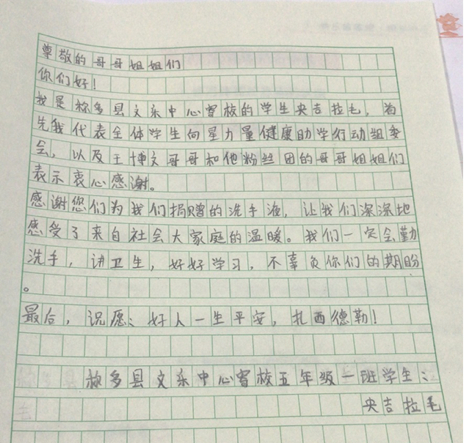 尊敬的哥哥姐姐们
你们好！
我是称多县文乐中心寄校的学生央吉拉毛，首
先我代表全体学生向星力量健康助学行动组委
会，以及王博文哥哥和他粉丝团的哥哥姐姐们
表示衷心感谢。
感谢您们为我们捐赠的洗手液，让我们深深地
感受了来自社会大家庭的温暖。我们一定会勤
洗手，讲卫生，好好学习，不辜负你们的期盼
。
最后，祝愿：好人一生平安，扎西德勒！
称多县文乐中心寄校五年级一班学生：
央吉拉毛